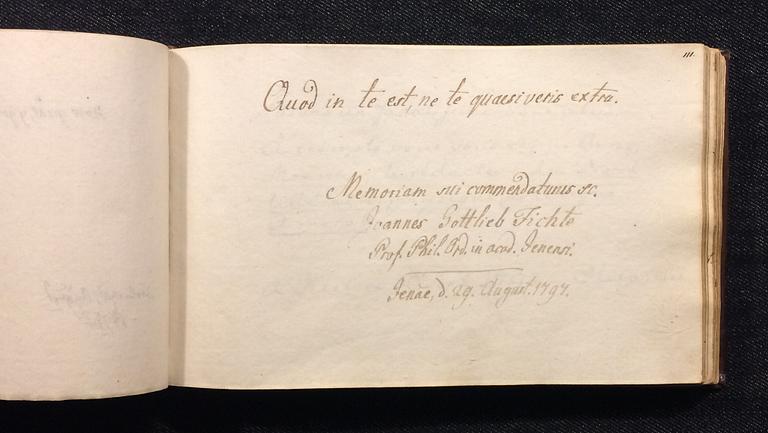 111.
Quod in te est, ne te quaesiveris extra.
Memoriam sui commendaturus sc.
Joannes Gottlieb Fichte
Prof. Phil. Ord. in acad. Jenensi.
Jenae, d. 29. August. 1797.